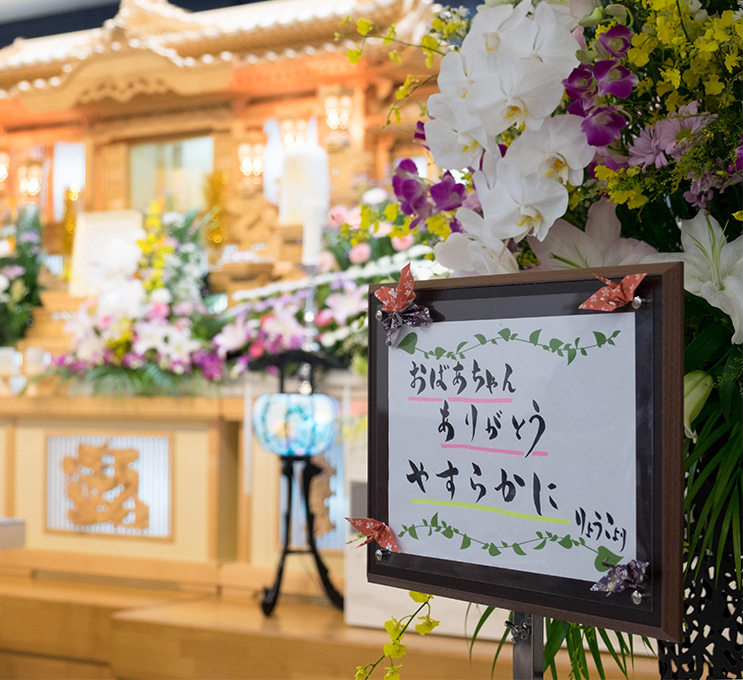 おばあちゃん
ありがとう
やすらかに
りょうこより